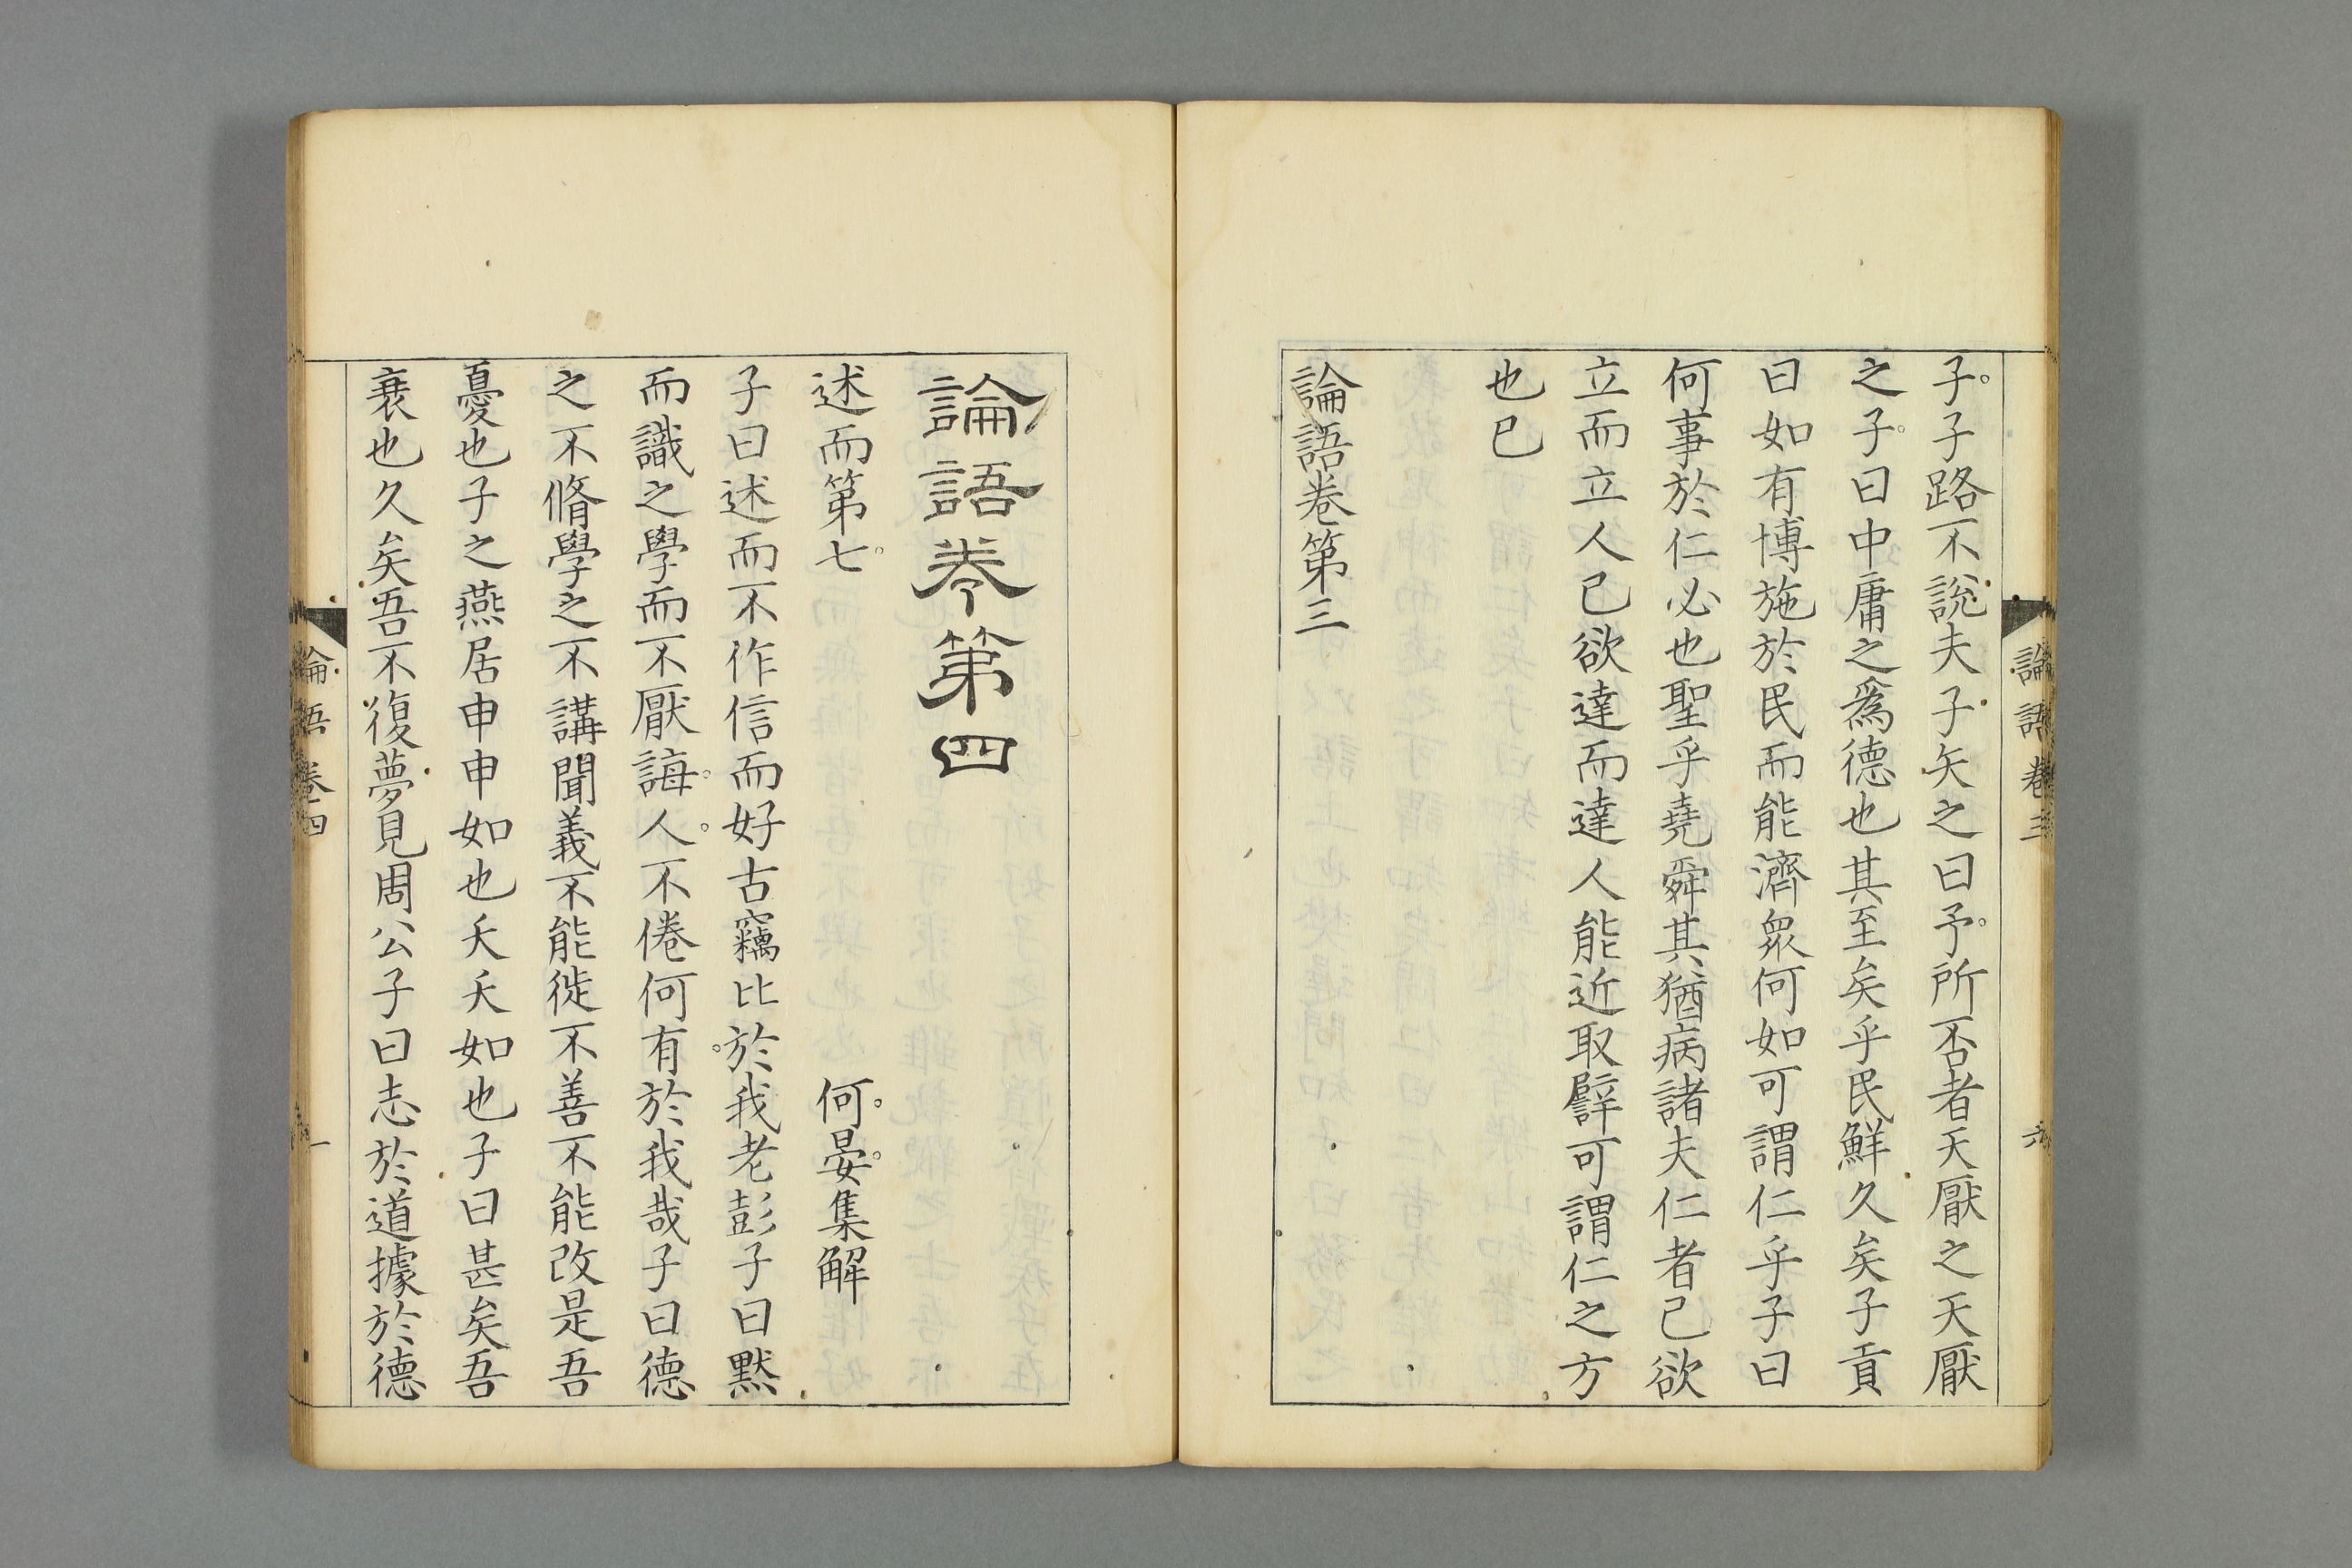 子子路不說夫子矢之曰予所否者天厭之天厭
之子曰中庸之爲德也其至矣乎民鮮久矣子貢
曰如有博施於民而能濟衆何如可謂仁乎子曰
何事於仁必也聖乎堯舜其猶病諸夫仁者己欲
立而立人己欲達而達人能近取譬可謂仁之方
也已
論語卷第三
論語卷三
六
論語卷第四
述而第七 何晏集解
子曰述而不作信而好古竊比於我老彭子曰默
而識之學而不厭誨人不倦何有於我哉子曰德
之不脩學之不講聞義不能徙不善不能改是吾
憂也子之燕居申申如也夭夭如也子曰甚矣吾
衰也久矣吾不復夢見周公子曰志於道據於德
論語卷四
一